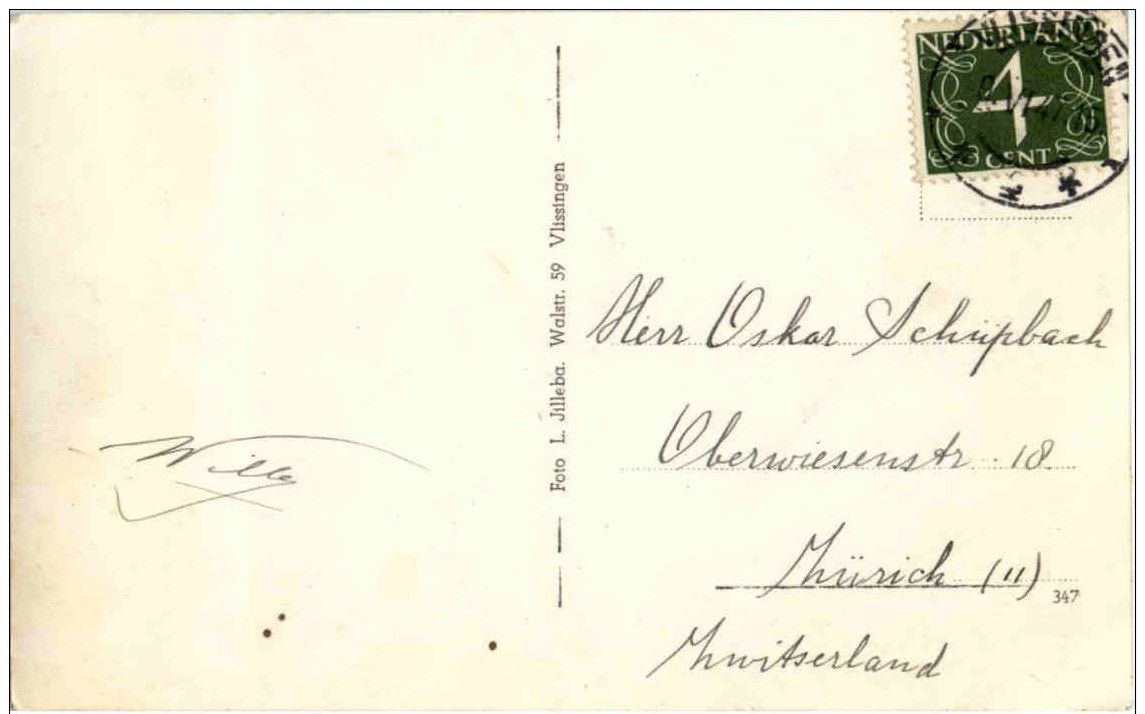 VLISSINGEN
NEDERLAND
4
CENT
Foto L. Jilleba. Walstr. 59 Vlissingen
Herr Oskar Schüpbach
Oberwiesenstr. 18
Zürich (11)
347
Zwitserland
Willy